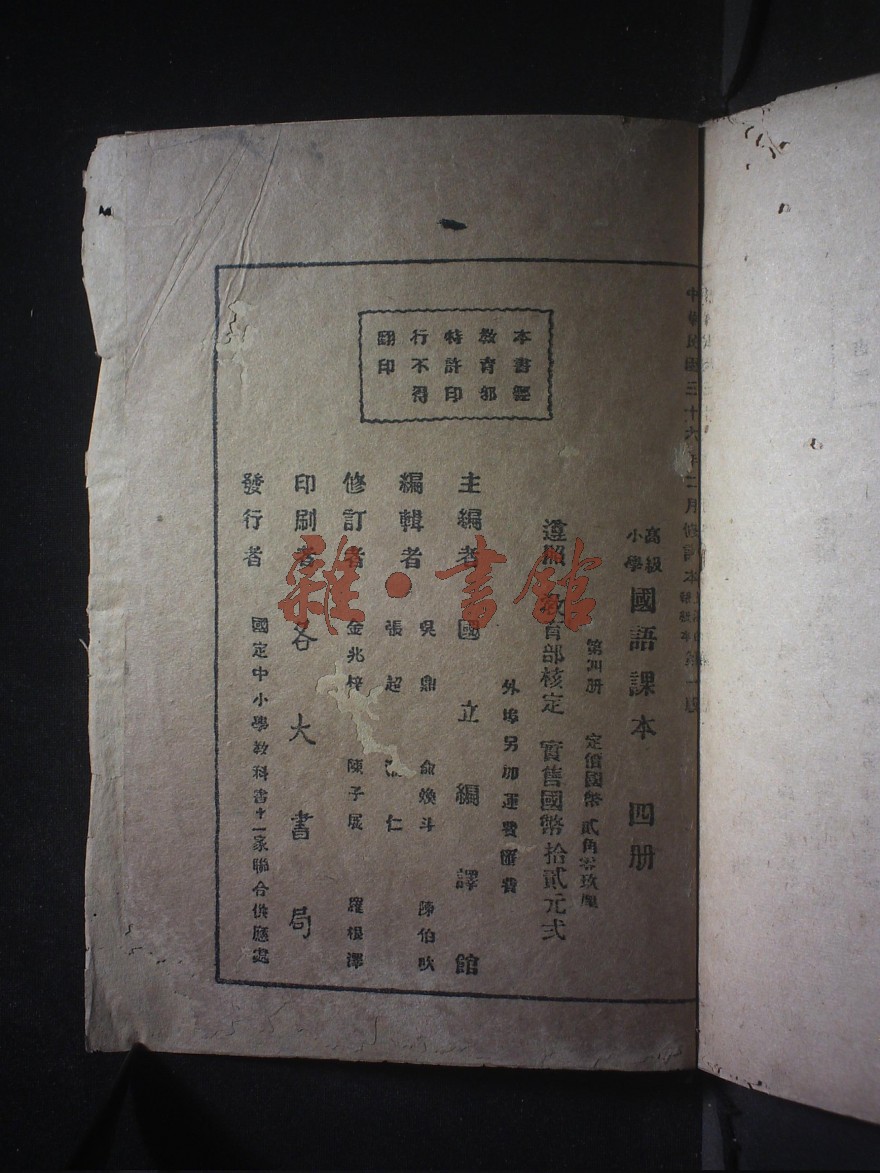 本書經
教育部
特許印
行不得
翻印
中華民國三十六年二月修訂本
高級
小學
國語課本 四册
第四册 定價國幣 貳角零玖厘
遵照 教育部核定 實售國幣拾貳元弍
外埠另加運費匯費
主編者 國立編譯館
編輯者 吳鼎 俞煥斗 陳伯吹
張超 仁
修訂者 金兆梓 陳子展 羅根澤
印刷者 各大書局
發行者 國定中小學教科書十一家聯合供應處
雜·書館